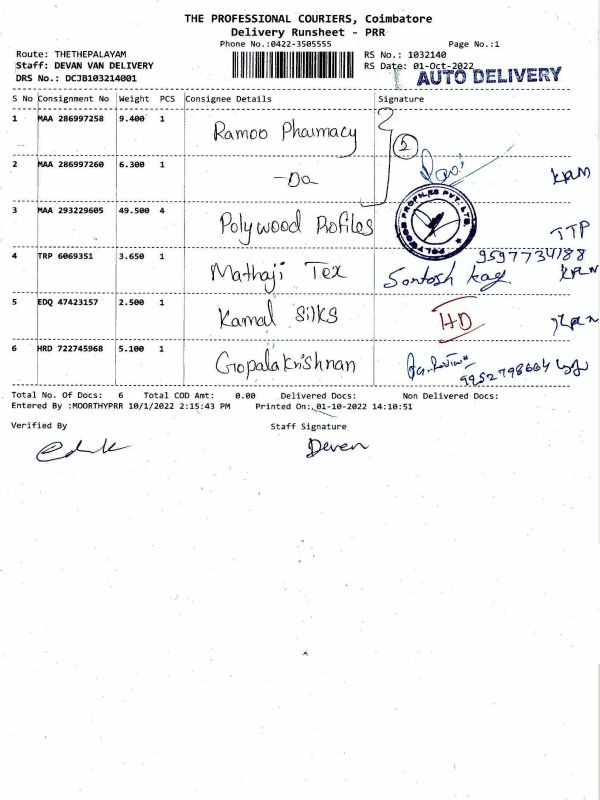 THE PROFESSIONAL COURIERS, Coimbatore
Delivery Runsheet - PRR
Phone No.:0422-3505555 Page No.:1
Route: THETHEPALAYAM RS No.: 1032140
Staff: DEVAN VAN DELIVERY RS Date: 01-Oct-2022
DRS No.: DCJB103214001 AUTO DELIVERY
S No Consignment No Weight PCS Consignee Details Signature
1 MAA 286997258 9.400 1 Ramoo Pharmacy 5
2 MAA 286997260 6.300 1 -Do
3 MAA 293229605 49.500 4 Polywood Profiles TTP
4 TRP 6069351 3.650 1 Mathaji Tex 9597734188
Santosh
5 EDQ 47423157 2.500 1 Kamal Silks HD
6 HRD 722745968 5.100 1 Gopalakrishnan
9952798664
Total No. Of Docs: 6 Total COD Amt: 0.00 Delivered Docs: Non Delivered Docs:
Entered By :MOORTHYPRR 10/1/2022 2:15:43 PM Printed On:.01-10-2022 14:10:51
Verified By Staff Signature
Deven